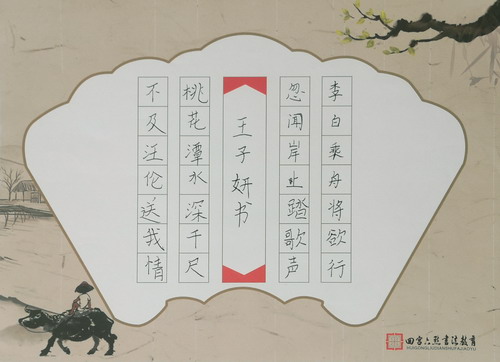 李白乘舟将欲行
忽闻岸止踏歌声
王子妍书
桃花潭水深千尺
不及汪伦送我情
回宫六点書法教育
HUIGONGLIUDIANSHUFAJIAOYU